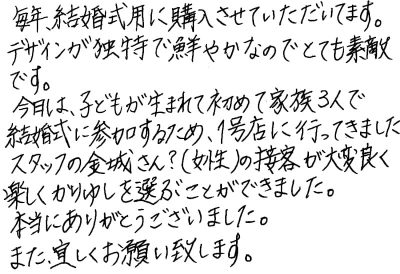 毎年、結婚式用に購入させていただいてます。
デザインが独特で鮮やかなのでとても素敵
です。
今日は、子どもが生まれて初めて家族3人で
結婚式に参加するため、1号店に行ってきました
スタッフの金城さん？(女性)の接客が大変良く
楽しくかりゆしを選ぶことができました。
本当にありがとうございました。
また、宜しくお願い致します。